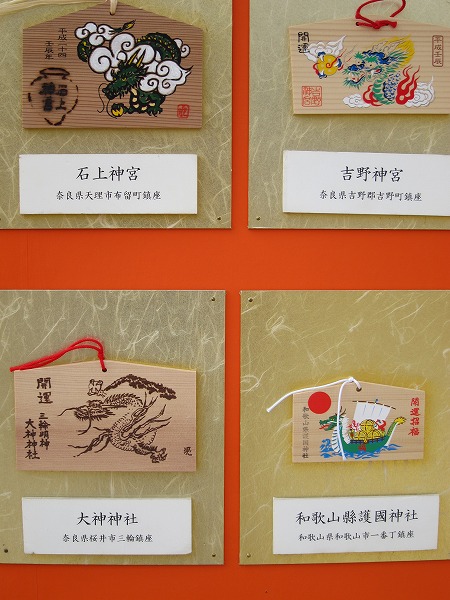 平成二十四
壬辰年
石上神宮
奈良県天理市布留町鎮座
開運
平成壬辰
吉野神宮
奈良県吉野郡吉野町鎮座
開運
三輪明神
大神神社
大神神社
奈良県桜井市三輪鎮座
開運招福
和歌山縣護國神社
和歌山縣護國神社
和歌山県和歌山市一番丁鎮座